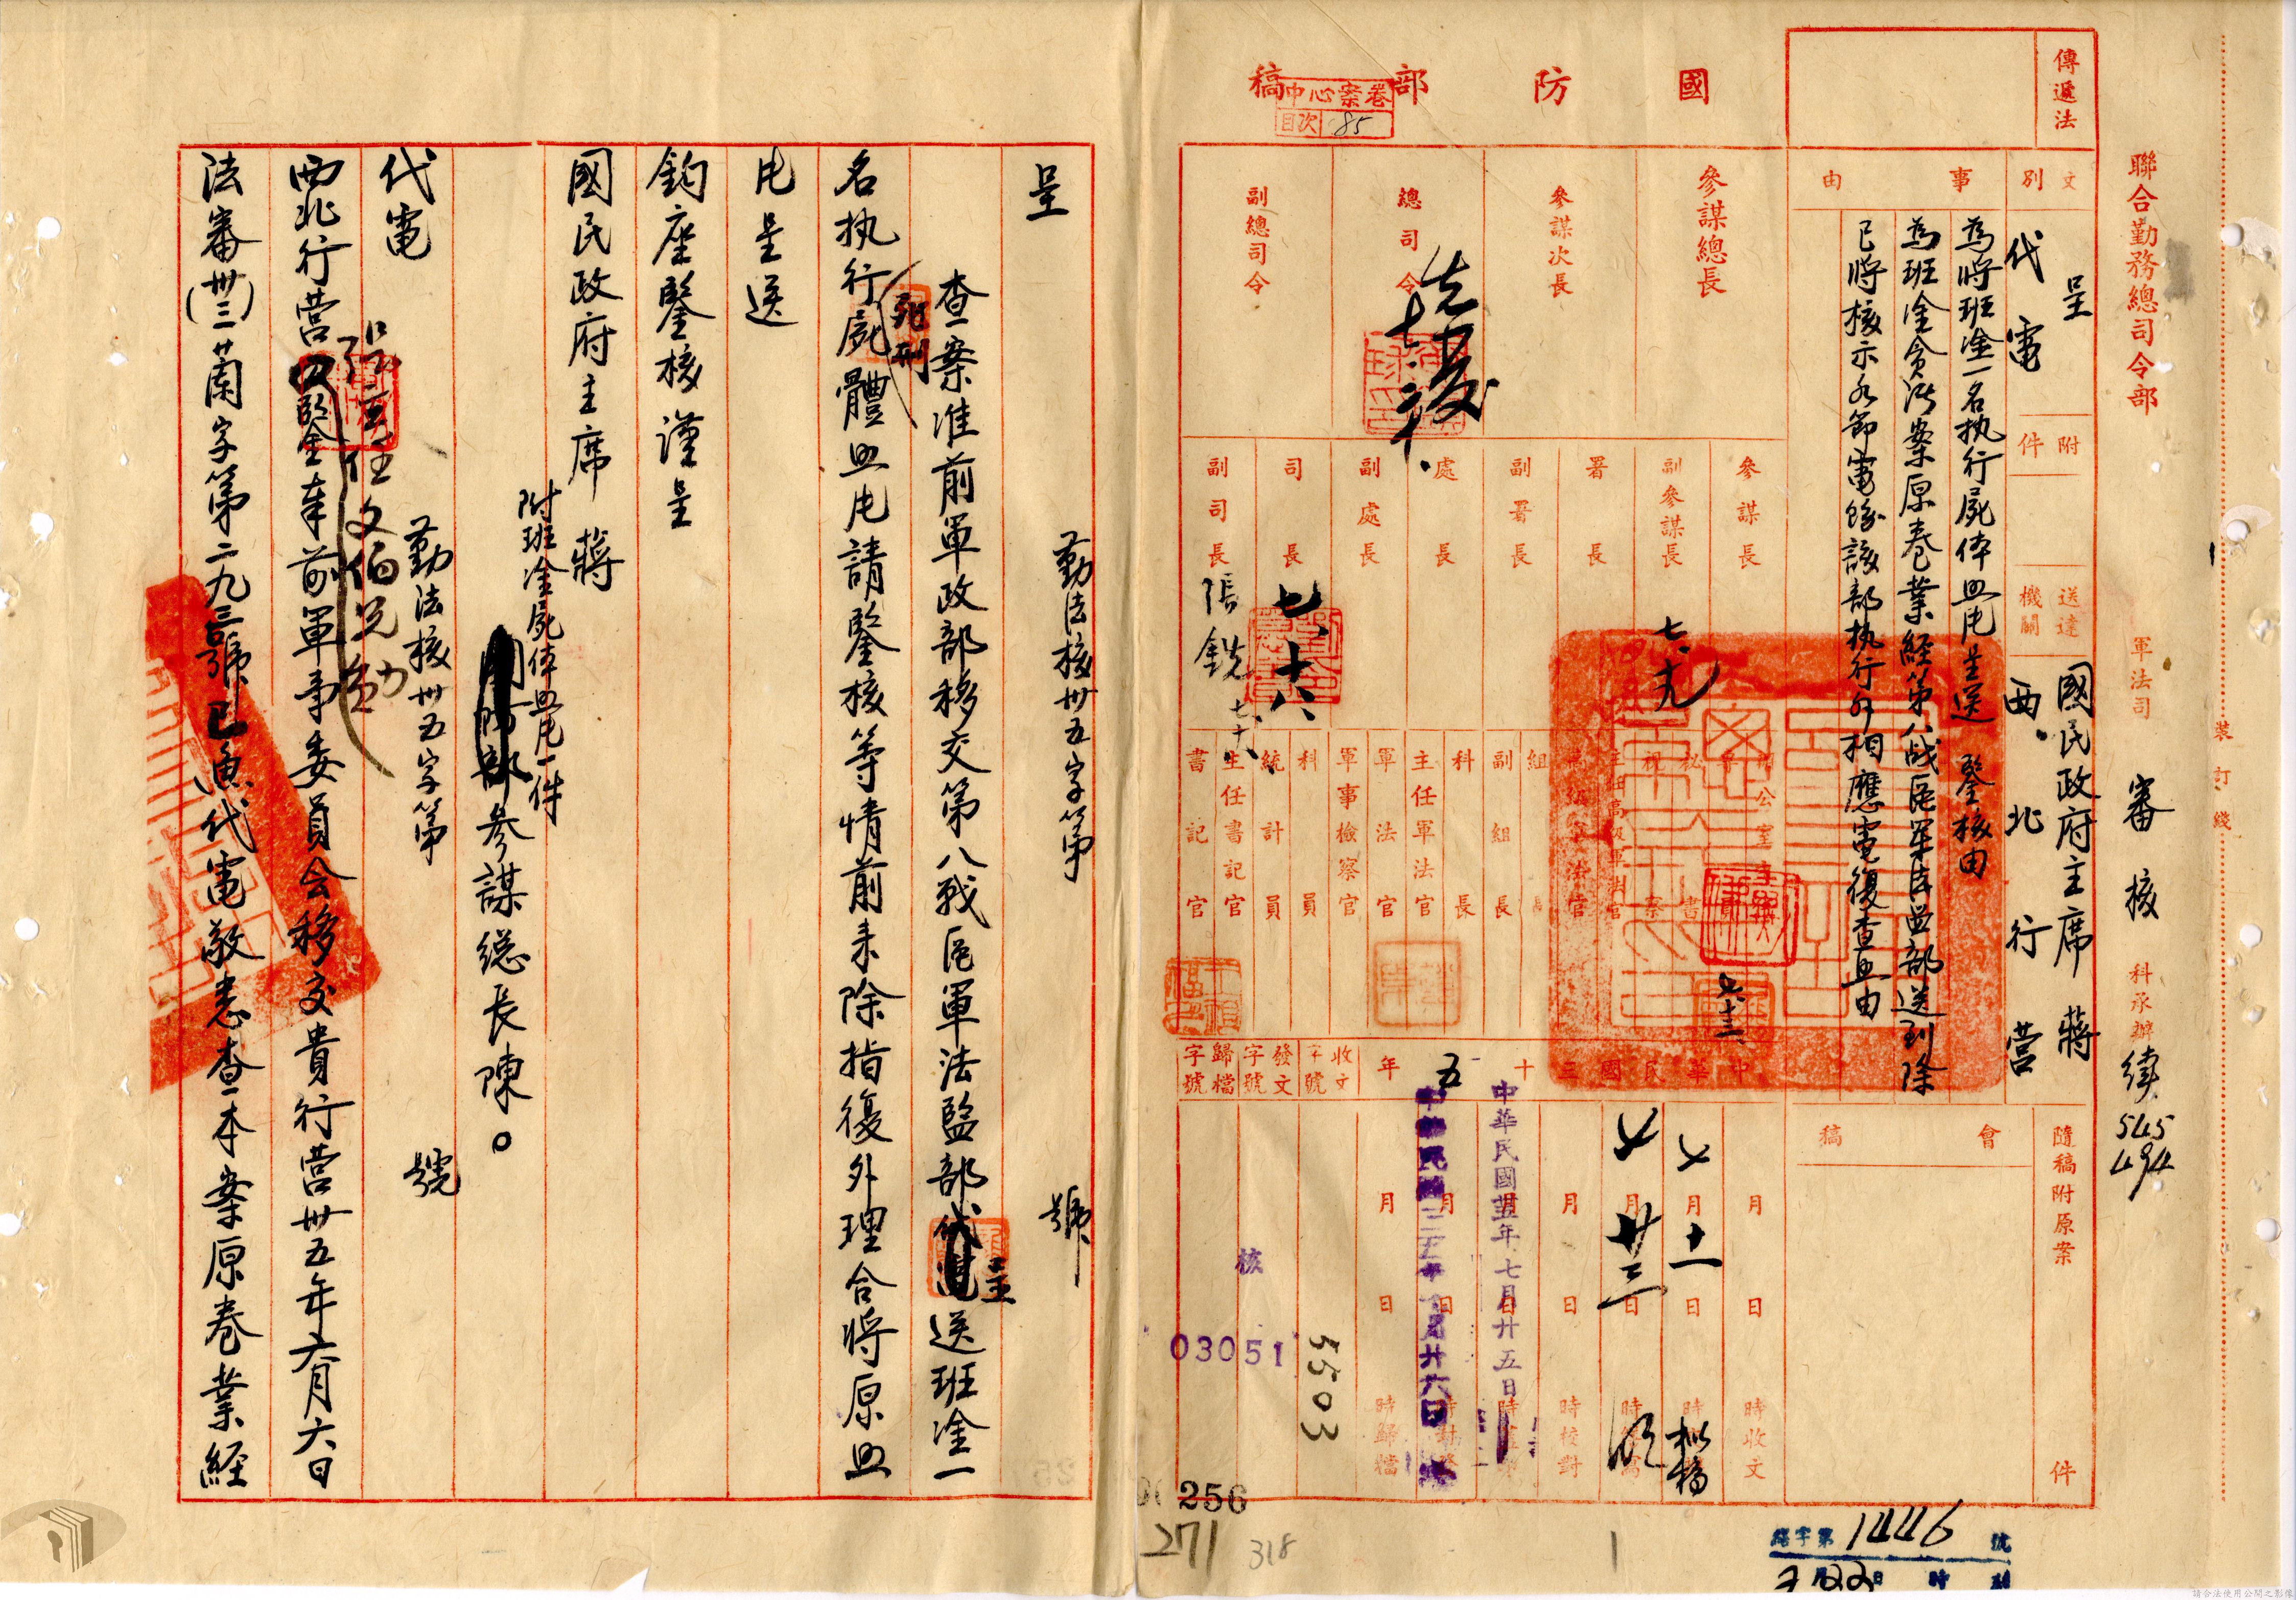 國防部稿
卷案心中
目次 85
聯合勤務總司令部 軍法司 審核科承辦
545
494
裝訂綫
傳遞法
文別 呈 代電
附件
送達機關 國民政府主席蔣 西北行營
事由
為將班淦一名执行屍体血照呈送鑒核由
為班淦貪污案原卷業經第八战區軍法監部送到除
已將核示各節電飭該部执行外相應電復查照由
隨稿附原案 件
會稿
參謀總長
參謀次長
總司令
副總司令
參謀長
副參謀長
署長
副署長
處長
副處長
司長
副司長
七、十六
張銑
七、九
組長
副組長
科長
主任軍法官
軍法官
軍事檢察官
科員
統計員
主任書記官
書記官
中華民國三十五年
月 日 時收文
七月十一日 擬稿
七月廿三日
月 日 時校對
中華民國卅五年七月廿五日
月 日 時歸檔
收文字號
發文字號
歸檔字號
核
03051
5503
256
271
318
1446 號
呈 勤法核卅五字第 號
查案准前軍政部移交第八戰區軍法監部呈送班淦一
名执行死刑屍體照片請鑒核等情前来除指復外理合將原照
片呈送
鈞座鑒核謹呈
國民政府主席蔣
附班淦屍体照片一件
國防部參謀總長陳。
代電 勤法核卅五字第 號
西北行營張主任文伯兄勛鑒奉前軍事委員会移交貴行營卅五年六月六日
法審(卅三)蘭字第二九三號巳魚代電敬悉查本案原卷業經